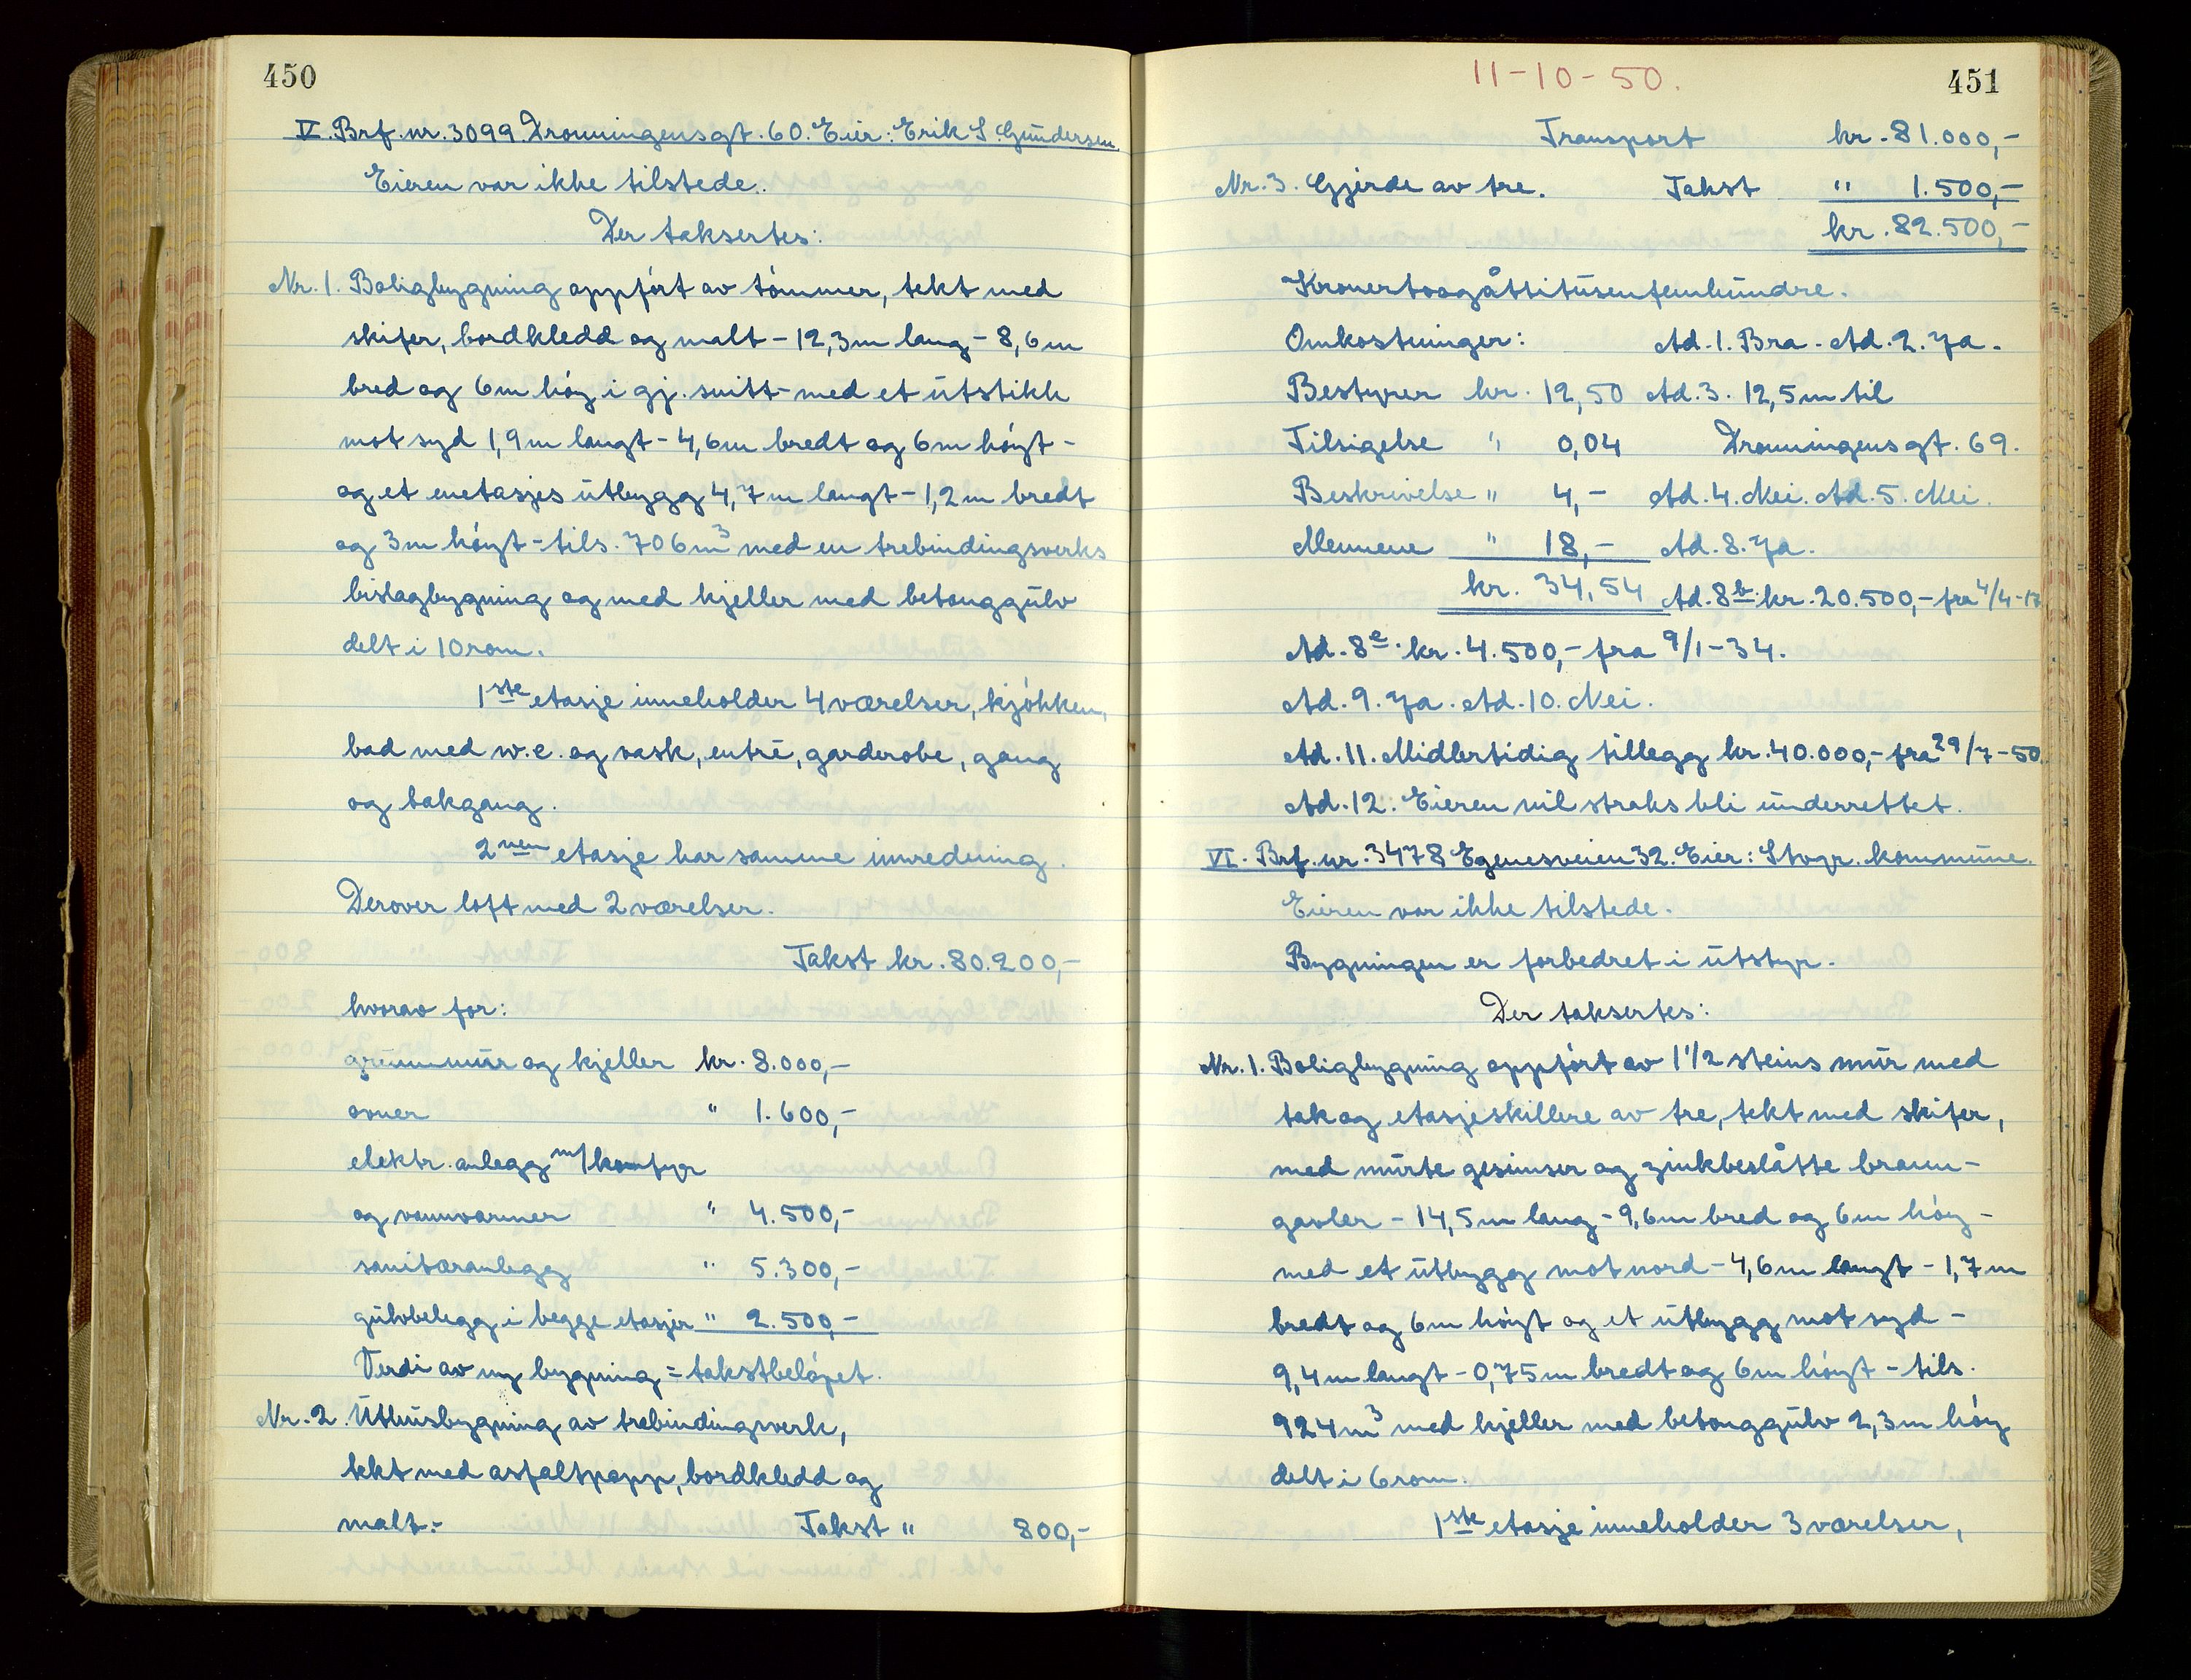 450
V. Brf. nr. 3099. Dronningensgt. 60. Eier: Erik S. Gundersen.
Eieren var ikke tilstede.
Der taksertes:
Nr. 1. Boligbygning oppført av tømmer, tekt med
skifer, bordkledd og malt - 12,3m lang - 8,6m
bred og 6m høy i gj. snitt - med et utstikk
mot syd 1,9m langt - 4,6m bredt og 6m høyt -
og et enetasjes utbygg 4,7m langt - 1,2m bredt
og 3m høyt - tils. 706m³ med en trebindingsverks
bislagbygning og med kjeller med betonggulv
delt i 10 rom.
1ste etasje inneholder 4 værelser, kjøkken,
bad med w.c. og vask, entré, garderobe, gang
og bakgang.
2nen etasje har samme innredning.
Derover loft med 2 værelser.
Takst kr. 80.200,-
hvorav for:
grunnmur og kjeller kr. 8.000,-
ovner " 1.600,-
elektr. anlegg m/komfyr
og vannvarmer " 4.500,-
sanitæranlegg " 5.300,-
gulvbelegg i begge etasjer " 2.500,-
Verdi av ny bygning = takstbeløpet.
Nr. 2. Uthusbygning av trebindingsverk,
tekt med asfaltpapp, bordkledd og
malt.- Takst " 800,-
11-10-50.
451
Transport kr. 81.000,-
Nr. 3. Gjerde av tre. Takst " 1.500,-
kr. 82.500,-
Kronertoogåttitusenfemhundre.
Omkostninger: Ad. 1. Bra. Ad. 2. Ja.
Bestyrer kr. 12,50 Ad. 3. 12,5m til
Tilsigelse " 0,04 Dronningensgt. 69.
Beskrivelse " 4,- Ad. 4. Nei. Ad. 5. Nei.
Mennene " 18,- Ad. 8. Ja.
kr. 34,54 Ad. 8b. kr. 20.500,- fra 4/4-17
Ad. 8c. kr. 4.500,- fra 9/1-34.
Ad. 9. Ja. Ad. 10. Nei.
Ad. 11. Midlertidig tillegg kr. 40.000,- fra 29/7-50.
Ad. 12. Eieren vil straks bli underrettet.
VI. Brf. nr. 3478 Egenesveien 32. Eier: Stvgr. kommune.
Eieren var ikke tilstede.
Bygningen er forbedret i utstyr.
Der taksertes:
Nr. 1. Boligbygning oppført av 1 1/2 steins mur med
tak og etasjeskillere av tre, tekt med skifer,
med murte gesimser og zinkbeslåtte brann-
gavler - 14,5m lang - 9,6m bred og 6m høy -
med et utbygg mot nord - 4,6m langt - 1,7m
bredt og 6m høyt og et utbygg mot syd -
9,4m langt - 0,75m bredt og 6m høyt - tils.
924m³ med kjeller med betonggulv 2,3m høy
delt i 6 rom.
1ste etasje inneholder 3 værelser,